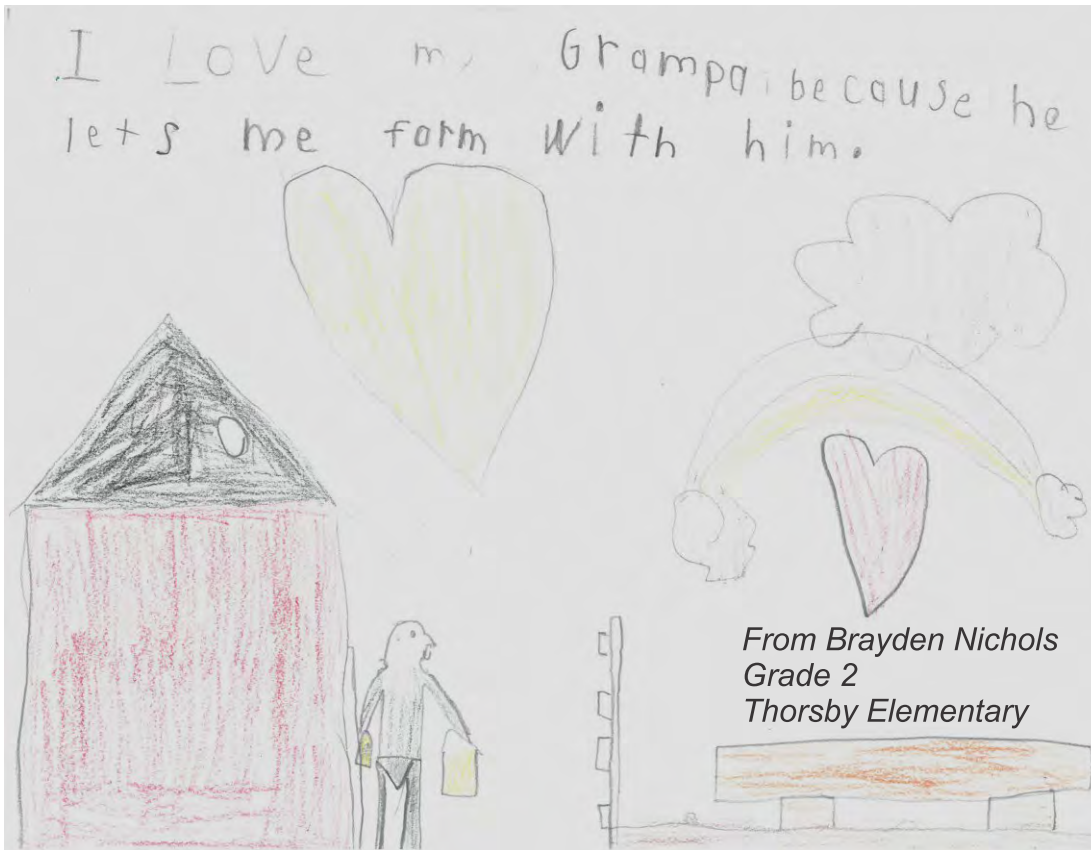 I Love m, Grampa because he
lets me farm with him.
From Brayden Nichols
Grade 2
Thorsby Elementary